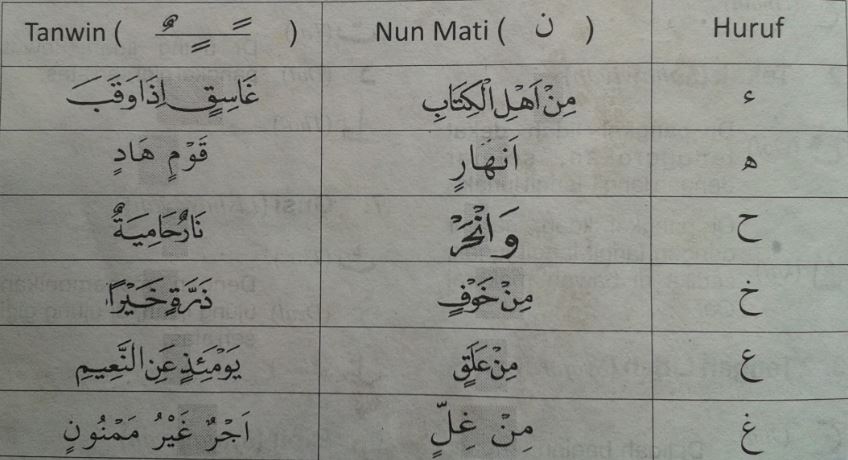 Tanwin ( ـًـٍـٌ ) Nun Mati ( ن ) Huruf
غَاسِقٍ اِذَا وَقَبَ مِنْ اَهْلِ الْكِتَابِ ء
قَوْمٍ هَادٍ اَنْهَارٍ ه
نَارٌحَامِيَةٌ وَانْحَرْ ح
ذَرَّةٍ خَيْرًا مِنْ خَوْفٍ خ
يَوْمَئِذٍ عَنِ النَّعِيمِ مِنْ عَلَقٍ ع
اَجْرٌ غَيْرُ مَمْنُونٍ مِنْ غِلٍّ غ